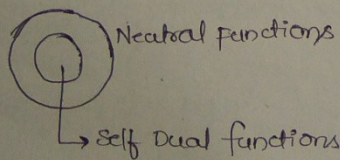 Neutral functions
Self Dual functions